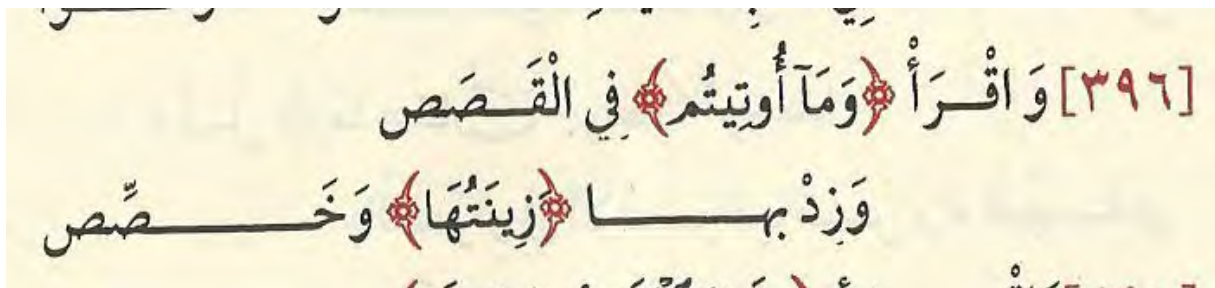 [٣٩٦] وَ اقْــرَأْ ﴿وَمَآ أُوتِيتُم﴾ فِي الْقَــصَص
وَزِدْ بِهــــــا ﴿زِينَتُهَا﴾ وَخَــــــصِّص